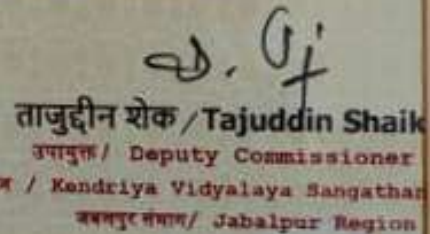 ताजुद्दीन शेक / Tajuddin Shaik
उपायुक्त / Deputy Commissioner
/ Kendriya Vidyalaya Sangathan
जबलपुर संभाग / Jabalpur Region